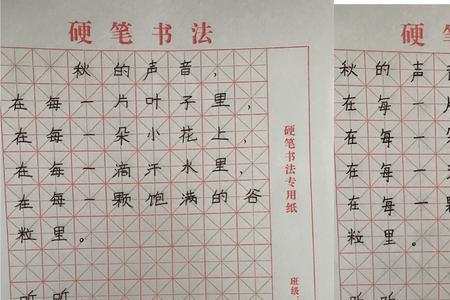 硬笔书法
秋的声音，
在每一片叶子里，
在每一朵小花上，
在每一滴汗水里，
在每一颗饱满的谷
粒里。
听听
硬笔书法专用纸
班级
硬笔
秋的声音
在每一片
在每一
在每一
在每一颗
粒里。
听听